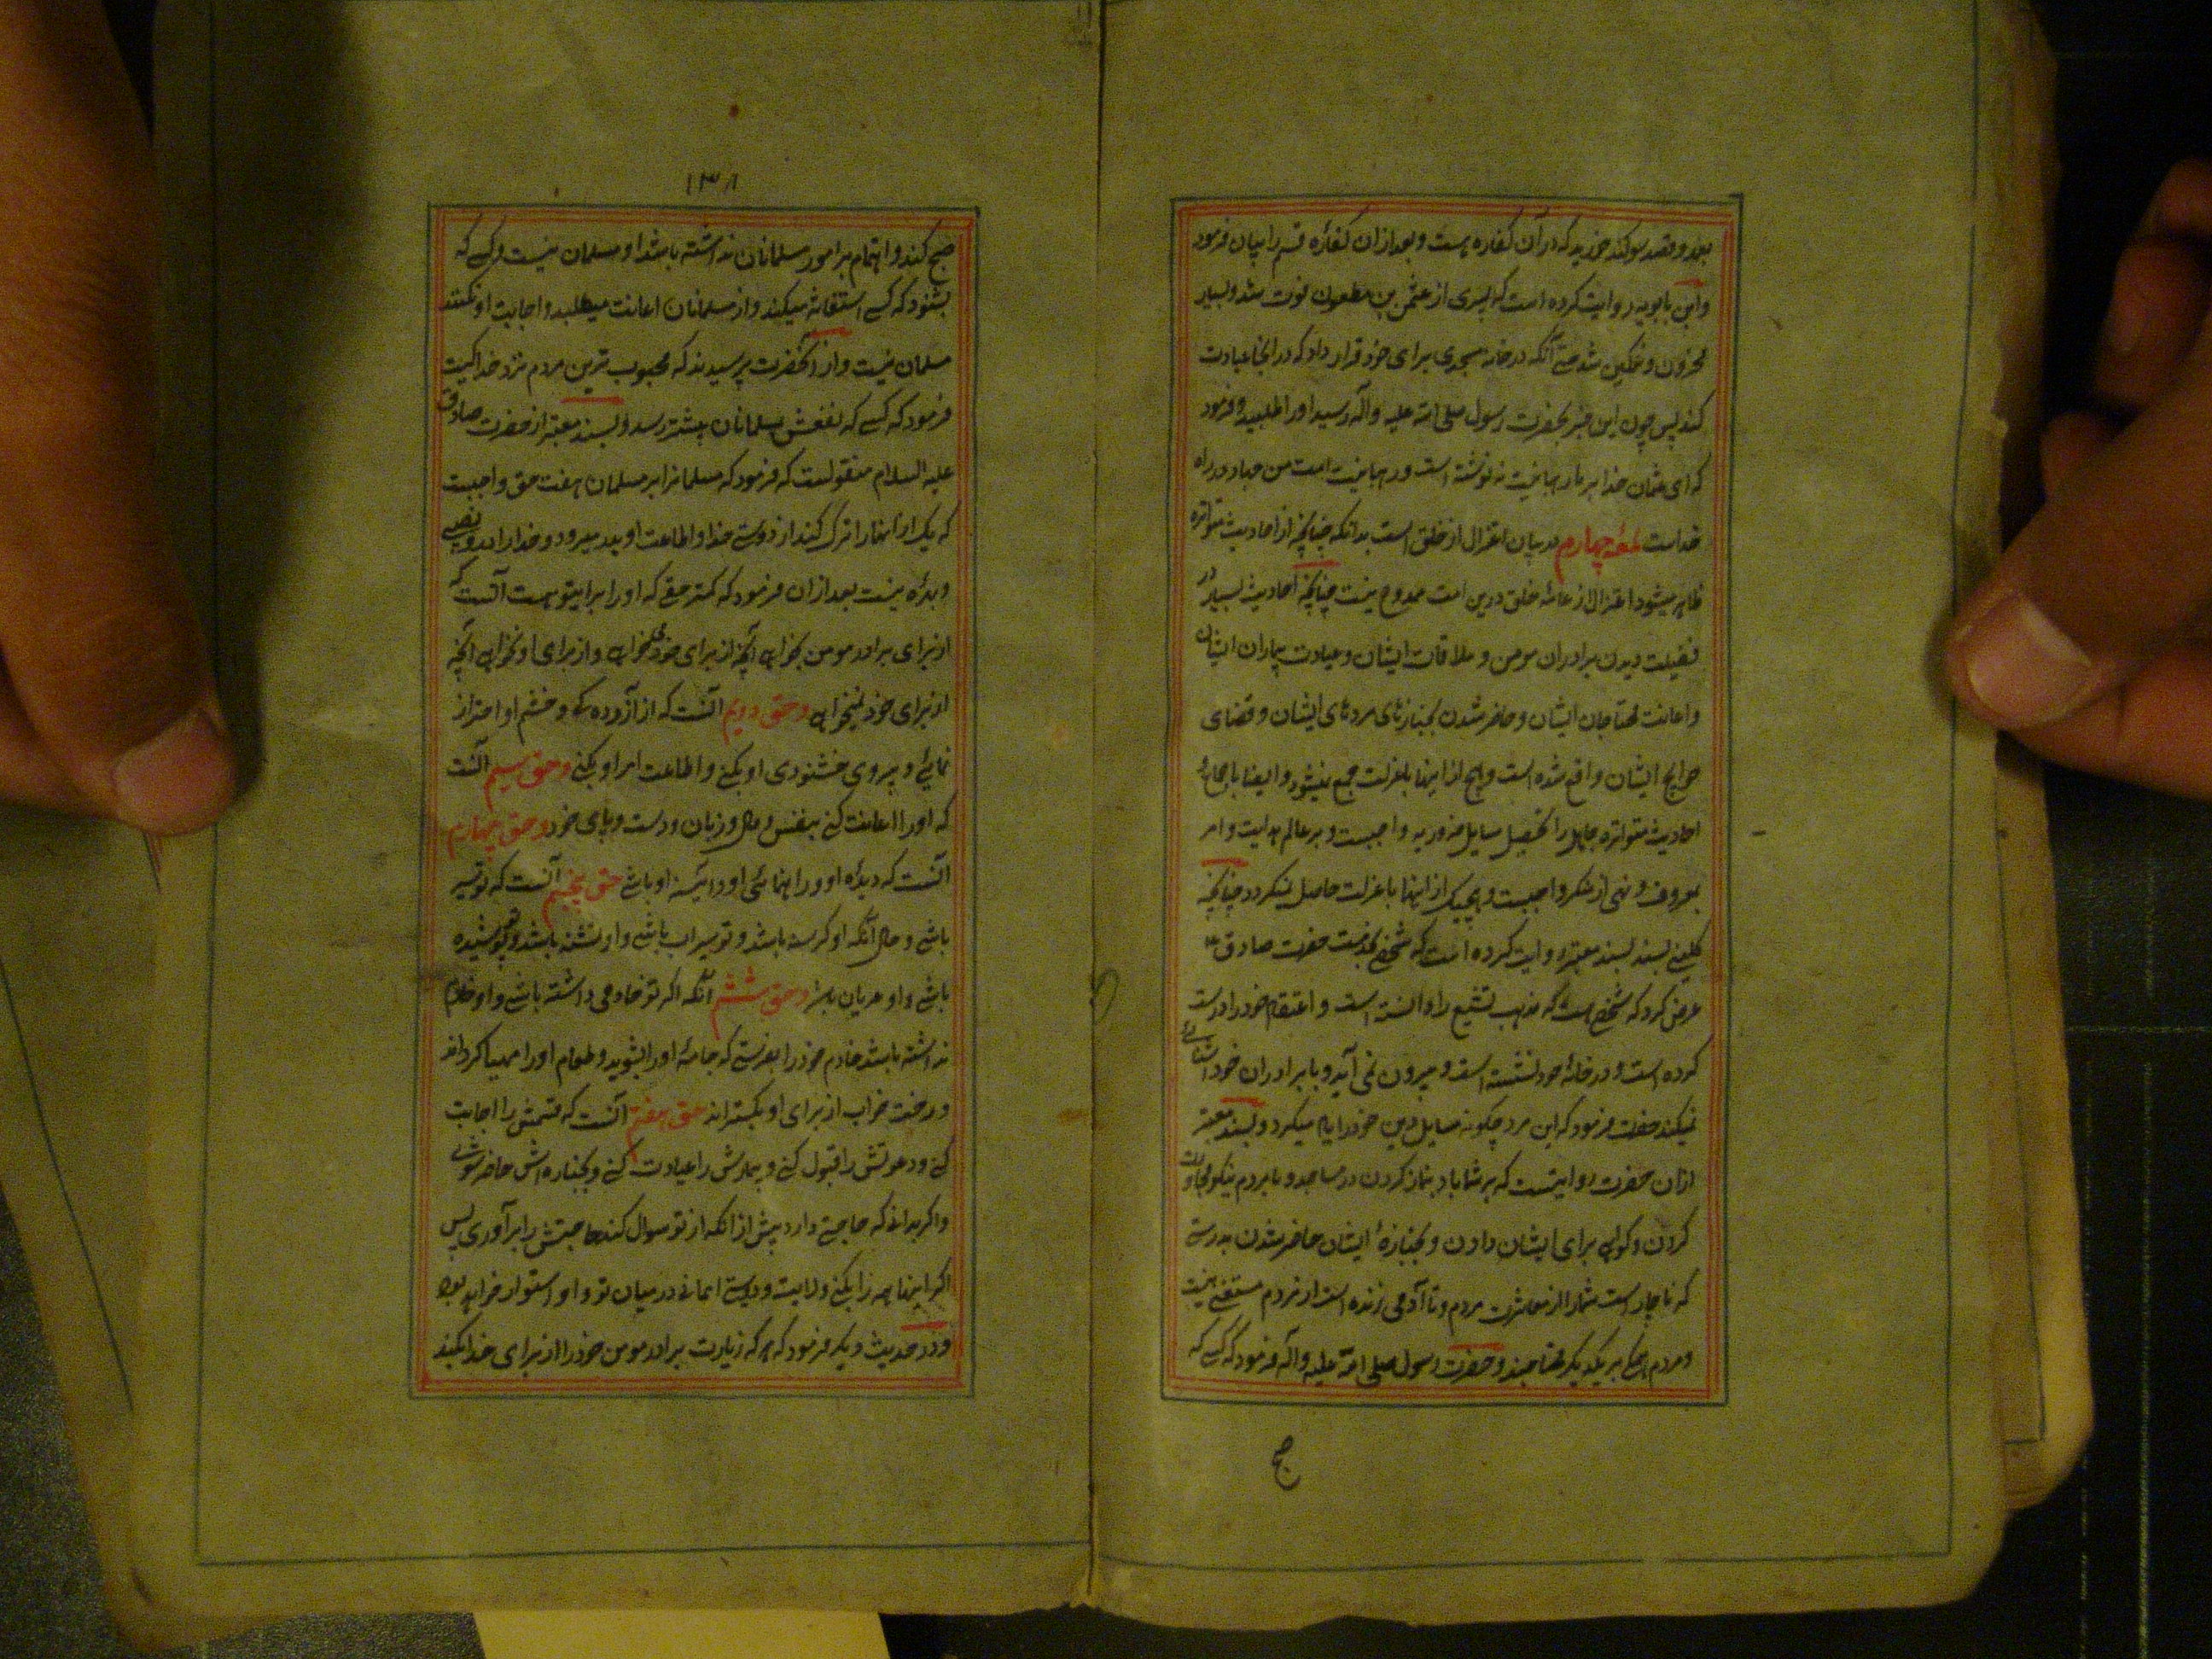 بعد و قصد سوکند خورید که در آن کفاره هست و بعد ازان کفاره قسم را بیان فرمود
وابن بابویه روایت کرده است که پسری از عثمن بن مظعون فوت شد و بسیار
محزون و غمکین شد حتی آنکه در خانه مسجدی برای خود قرار داد که در آنجا عبادت
کند پس چون این خبر بحضرت رسول صلی الله علیه وآله رسید او را طلبید و فرمود
که ای عثمان خدا بر ما رهبانیت ننوشته است و رهبانیت امت من جهاد در راه
خداست لمعه چهارم در بیان اعتزال از خلق است بدانکه چنانچه از احادیث متواتره
ظاهر میشود اعتزال از عامه خلق درین امت ممدوح نیست چنانچه احادیث بسیار در
فضیلت دیدن برادران مومن و ملاقات ایشان و عیادت بیماران ایشان
و اعانت محتاجان ایشان و حاضر شدن بجنازهای مردهای ایشان و قضای
حوایج ایشان واقع شده است و هیچ از اینها با عزلت جمع نمیشود و ایضا باجماع و
احادیث متواتره جاهل را تحصیل مسایل ضروریه واجبست و بر عالم هدایت و امر
بمعروف و نهی از منکر واجبست و هیچیک از اینها با عزلت حاصل نمیکردد چنانچه
کلینی بسند بسند معتبر روایت کرده است که شخصی بخدمت حضرت صادق ع
عرض کرد که شخصی هست که مذهب تشیع را دانسته است و اعتقاد خود را درست
کرده است و در خانهٔ خود نشسته است و بیرون نمی آید و با برادران خود آشنائی
نمیکند حضرت فرمود که این مرد چکونه مسایل دین خود را یاد میکرد و بسند معتبر
ازان حضرت روایتست که بر شما باد بنماز کردن در مساجد و با مردم نیکو مجاورت
کردن و کواهی برای ایشان دادن و بجنازهٔ ایشان حاضر شدن بدرستی
که ناچار است شما را از معاشرت مردم و تا آدمی زنده است از مردم مستغنی نیست
و مردم همکی بیکدیکر محتاجند و حضرت رسول صلی الله علیه وآله فرمود که کسی که
صبح
۱۳۸
صبح کند و اهتمام بر امور مسلمانان نداشته باشد او مسلمان نیست و کسی که
بشنود که کسی استغاثه میکند و از مسلمانان اعانت میطلبد و اجابت او نکند
مسلمان نیست و از آنحضرت پرسیدند که محبوب ترین مردم نزد خدا کیست
فرمود که کسی که نفعش بمسلمانان بیشتر رسد و بسند معتبر از حضرت صادق
علیه السلام منقولست که فرمود که مسلمانرا بر مسلمان هفت حق واجبست
که یک از آنها را ترک کند از دوستی خدا و اطاعت او بدر میرود و خدا را در او نصیبی
و بهره نیست بعد ازان فرمود که کمتر حقی که او را بر تو هست آنست که
از برای برادر مومن بخواهی آنچه از برای خود میخواهی و از برای او نخواهی آنچه
از برای خود نمیخواهی و حق دویم آنست که از آزرده کی و خشم او احتراز
نمائی و پیروی خشنودی او بکنی و اطاعت امر او بکنی و حق سیم آنست
که او را اعانت کنی بنفس و مال و زبان و دست و پای خود و حق چهارم
آنست که دیدهٔ او و راهنمائی او و آئینه او باشی حق پنجم آنست که تو سیر
باشی و حال آنکه او کرسنه باشد و تو سیراب باشی و او تشنه باشد و تو پوشیده
باشی و او عریان باشد و حق ششم آنکه اکر تو خادمی داشته باشی و او خادم
نداشته باشد خادم خود را بفرستی که جامهٔ او را بشوید و طعام او را مهیا کرداند
و رخت خواب از برای او بکستراند حق هفتم آنست که قسمش را اجابت
کنی و دعوتش را قبول کنی و بیمارش را عیادت کنی و بجنازه اش حاضر شوی
و اکر بدانی که حاجتی دارد پیش از آنکه از تو سوال کند حاجتش را برآوری پس
اکر اینها همه را بکنی ولایت و دوستی ایمانی در میان تو و او استوار خواهد بود
و در حدیث دیکر فرمود که هر که زیارت برادر مومن خود را از برای خدا بکند